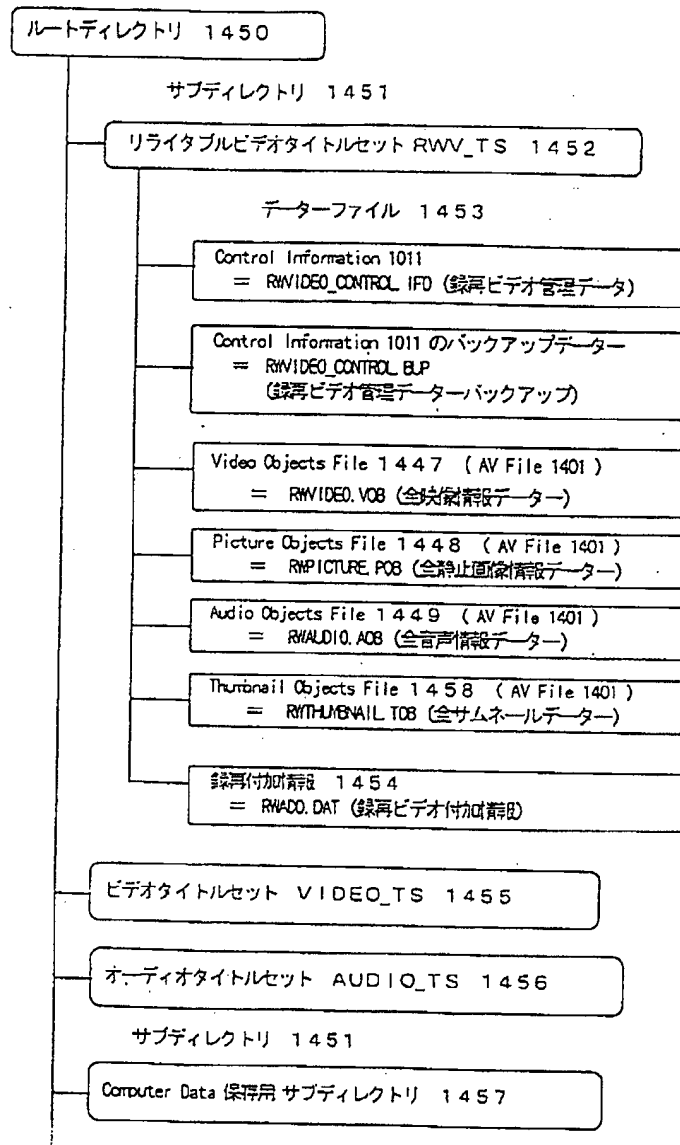 ルートディレクトリ 1450
サブディレクトリ 1451
リライタブルビデオタイトルセット RWV_TS 1452
データーファイル 1453
Control Information 1011
= RWVIDEO_CONTROL.IFO (録再ビデオ管理データ)
Control Information 1011 のバックアップデーター
= RWVIDEO_CONTROL.BUP
(録再ビデオ管理データーバックアップ)
Video Objects File 1447 (AV File 1401)
= RWVIDEO.VOB (全映像情報データー)
Picture Objects File 1448 (AV File 1401)
= RWPICTURE.POB (全静止画像情報データー)
Audio Objects File 1449 (AV File 1401)
= RWAUDIO.AOB (全音声情報データー)
Thumbnail Objects File 1458 (AV File 1401)
= RWTHUMBNAIL.TOB (全サムネールデーター)
録再付加情報 1454
= RWADD.DAT (録再ビデオ付加情報)
ビデオタイトルセット VIDEO_TS 1455
オーディオタイトルセット AUDIO_TS 1456
サブディレクトリ 1451
Computer Data 保存用 サブディレクトリ 1457